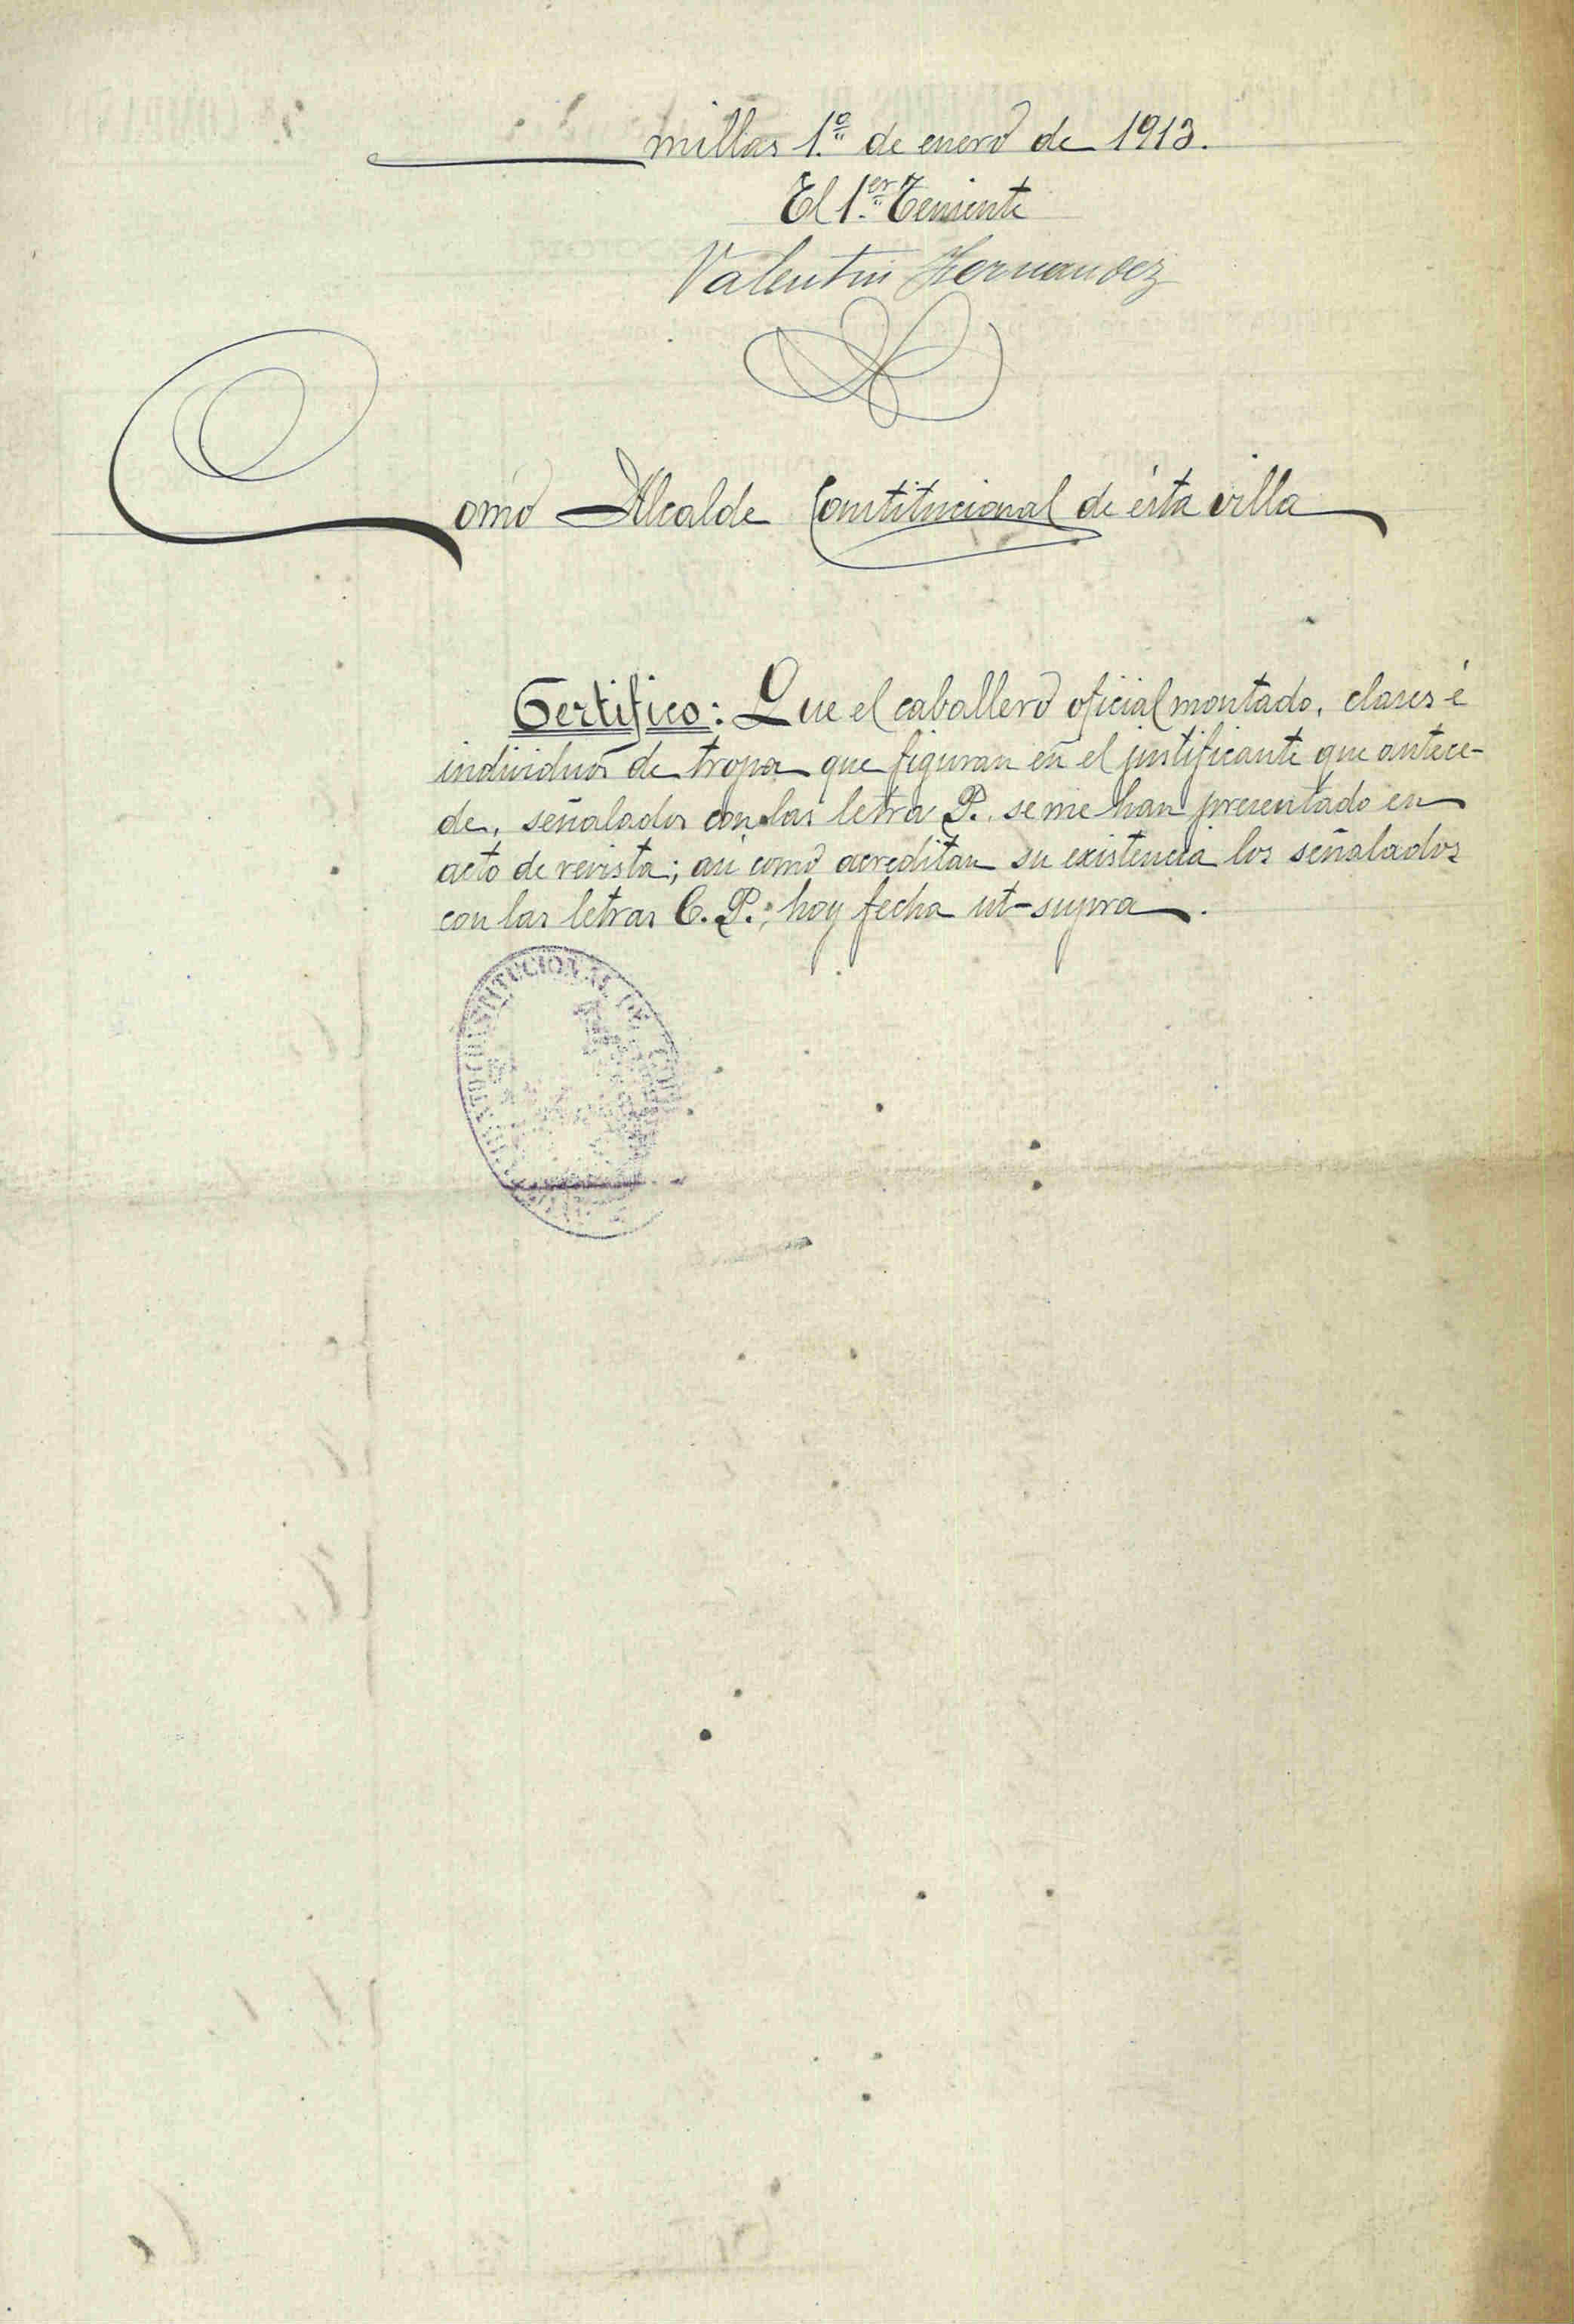 millas 1.º de enero de 1913.
El 1.er Teniente
Valentin Hernandez
Como Alcalde Constitucional de ésta villa
Certifico: Que el caballero oficial montado, clases é
individuos de tropa que figuran en el justificante que antece-
de, señalados con las letra P. se me han presentado en
acto de revista; asi como acreditan su existencia los señalados
con las letras C. P.; hoy fecha ut-supra.
CONSTITUCIONAL DE